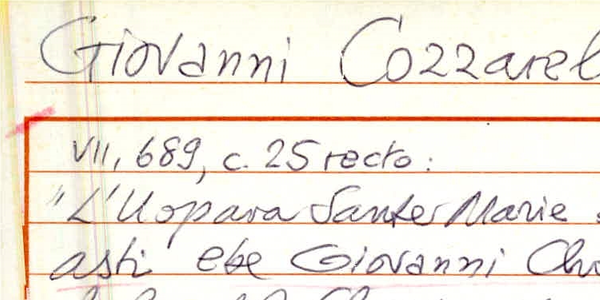 Giovanni Cozzarel
VII, 689, c. 25 recto:
"L'Uopara Sante Marie
asti ebe Giovanni